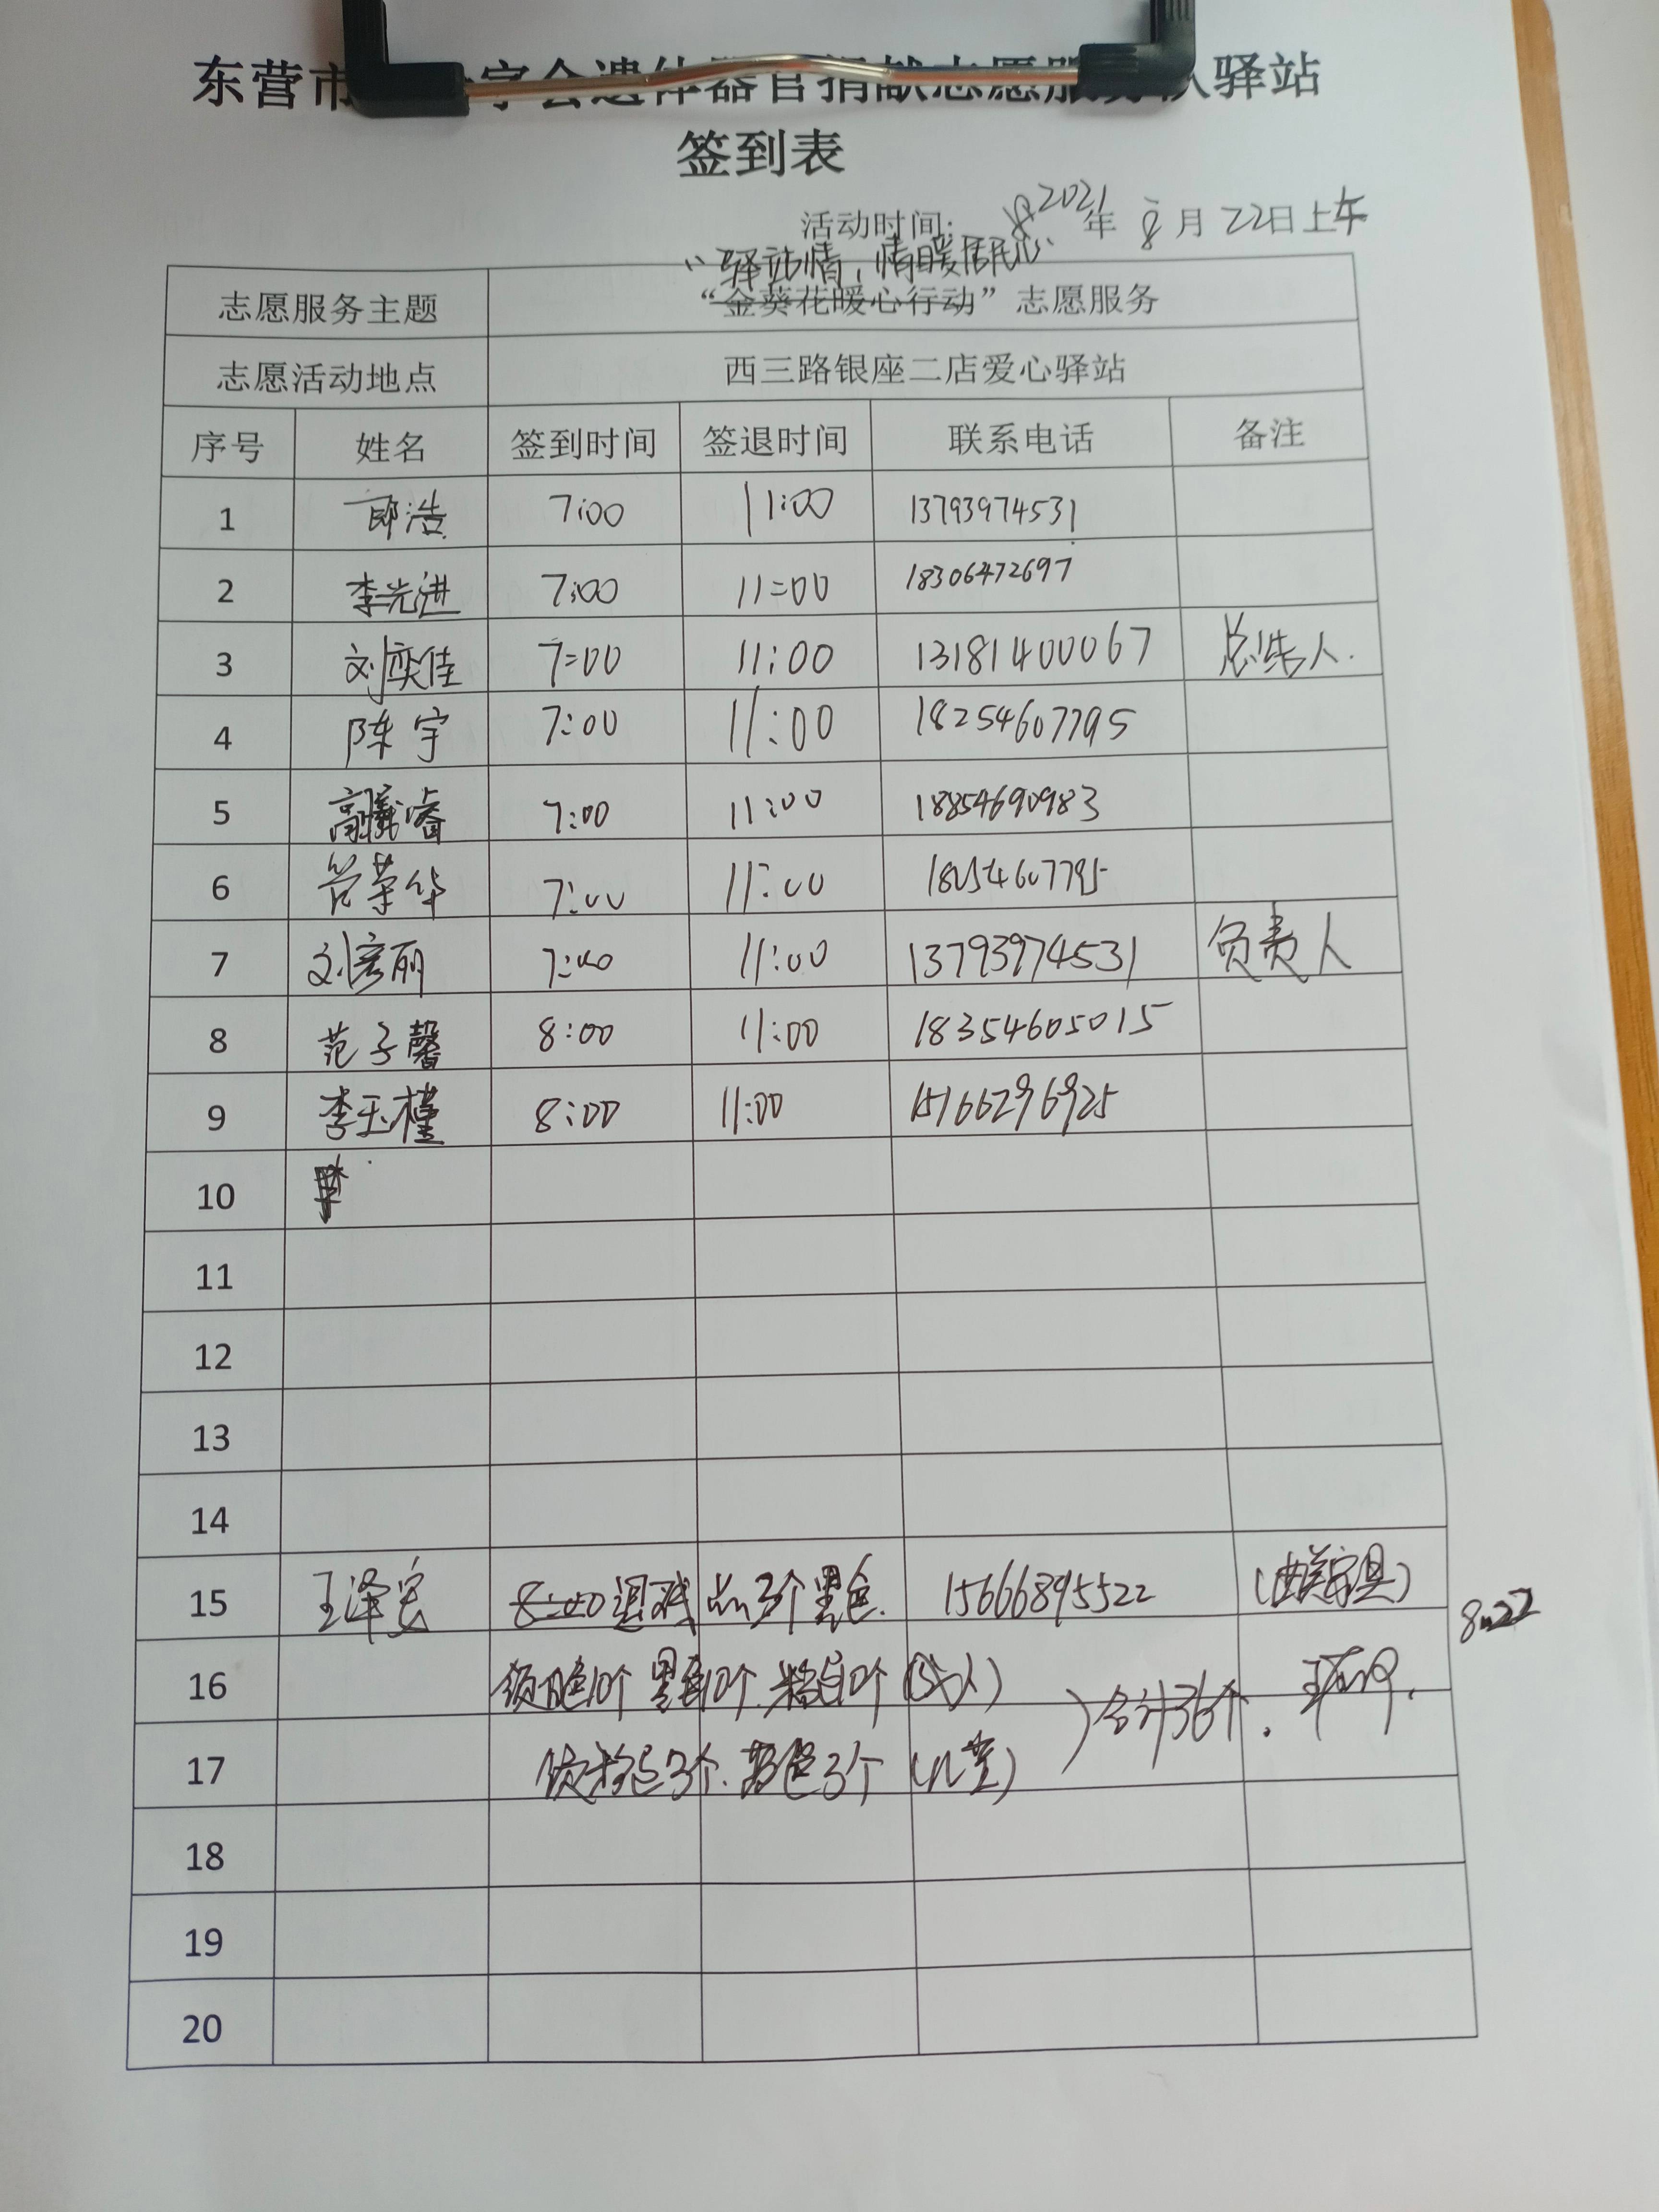 东营市字会遗体器官捐献志愿服务队驿站
签到表
活动时间: 2021年 8月 22日上午
“驿站情,情暖居民心
志愿服务主题 “金葵花暖心行动”志愿服务
志愿活动地点 西三路银座二店爱心驿站
序号 姓名 签到时间 签退时间 联系电话 备注
1 郎浩 7:00 11:00 13793974531
2 李光进 7:00 11:00 18306472697
3 刘奕佳 7:00 11:00 13181400067 总结人.
4 陈宇 7:00 11:00 18254607795
5 高睿 7:00 11:00 18854690983
6 管荣华 7:00 11:00 18254607795
7 刘彦丽 7:00 11:00 13793974531 负责人
8 范子馨 8:00 11:00 18354605015
9 李玉槿 8:00 11:00 15166296925
10
11
12
13
14
15 王泽宾 8:00 退残 品3个黑色. 15666895522
8.22
16 10个 黑色10个 10个
合计36个.
17 3个. 3个 (儿童)
18
19
20